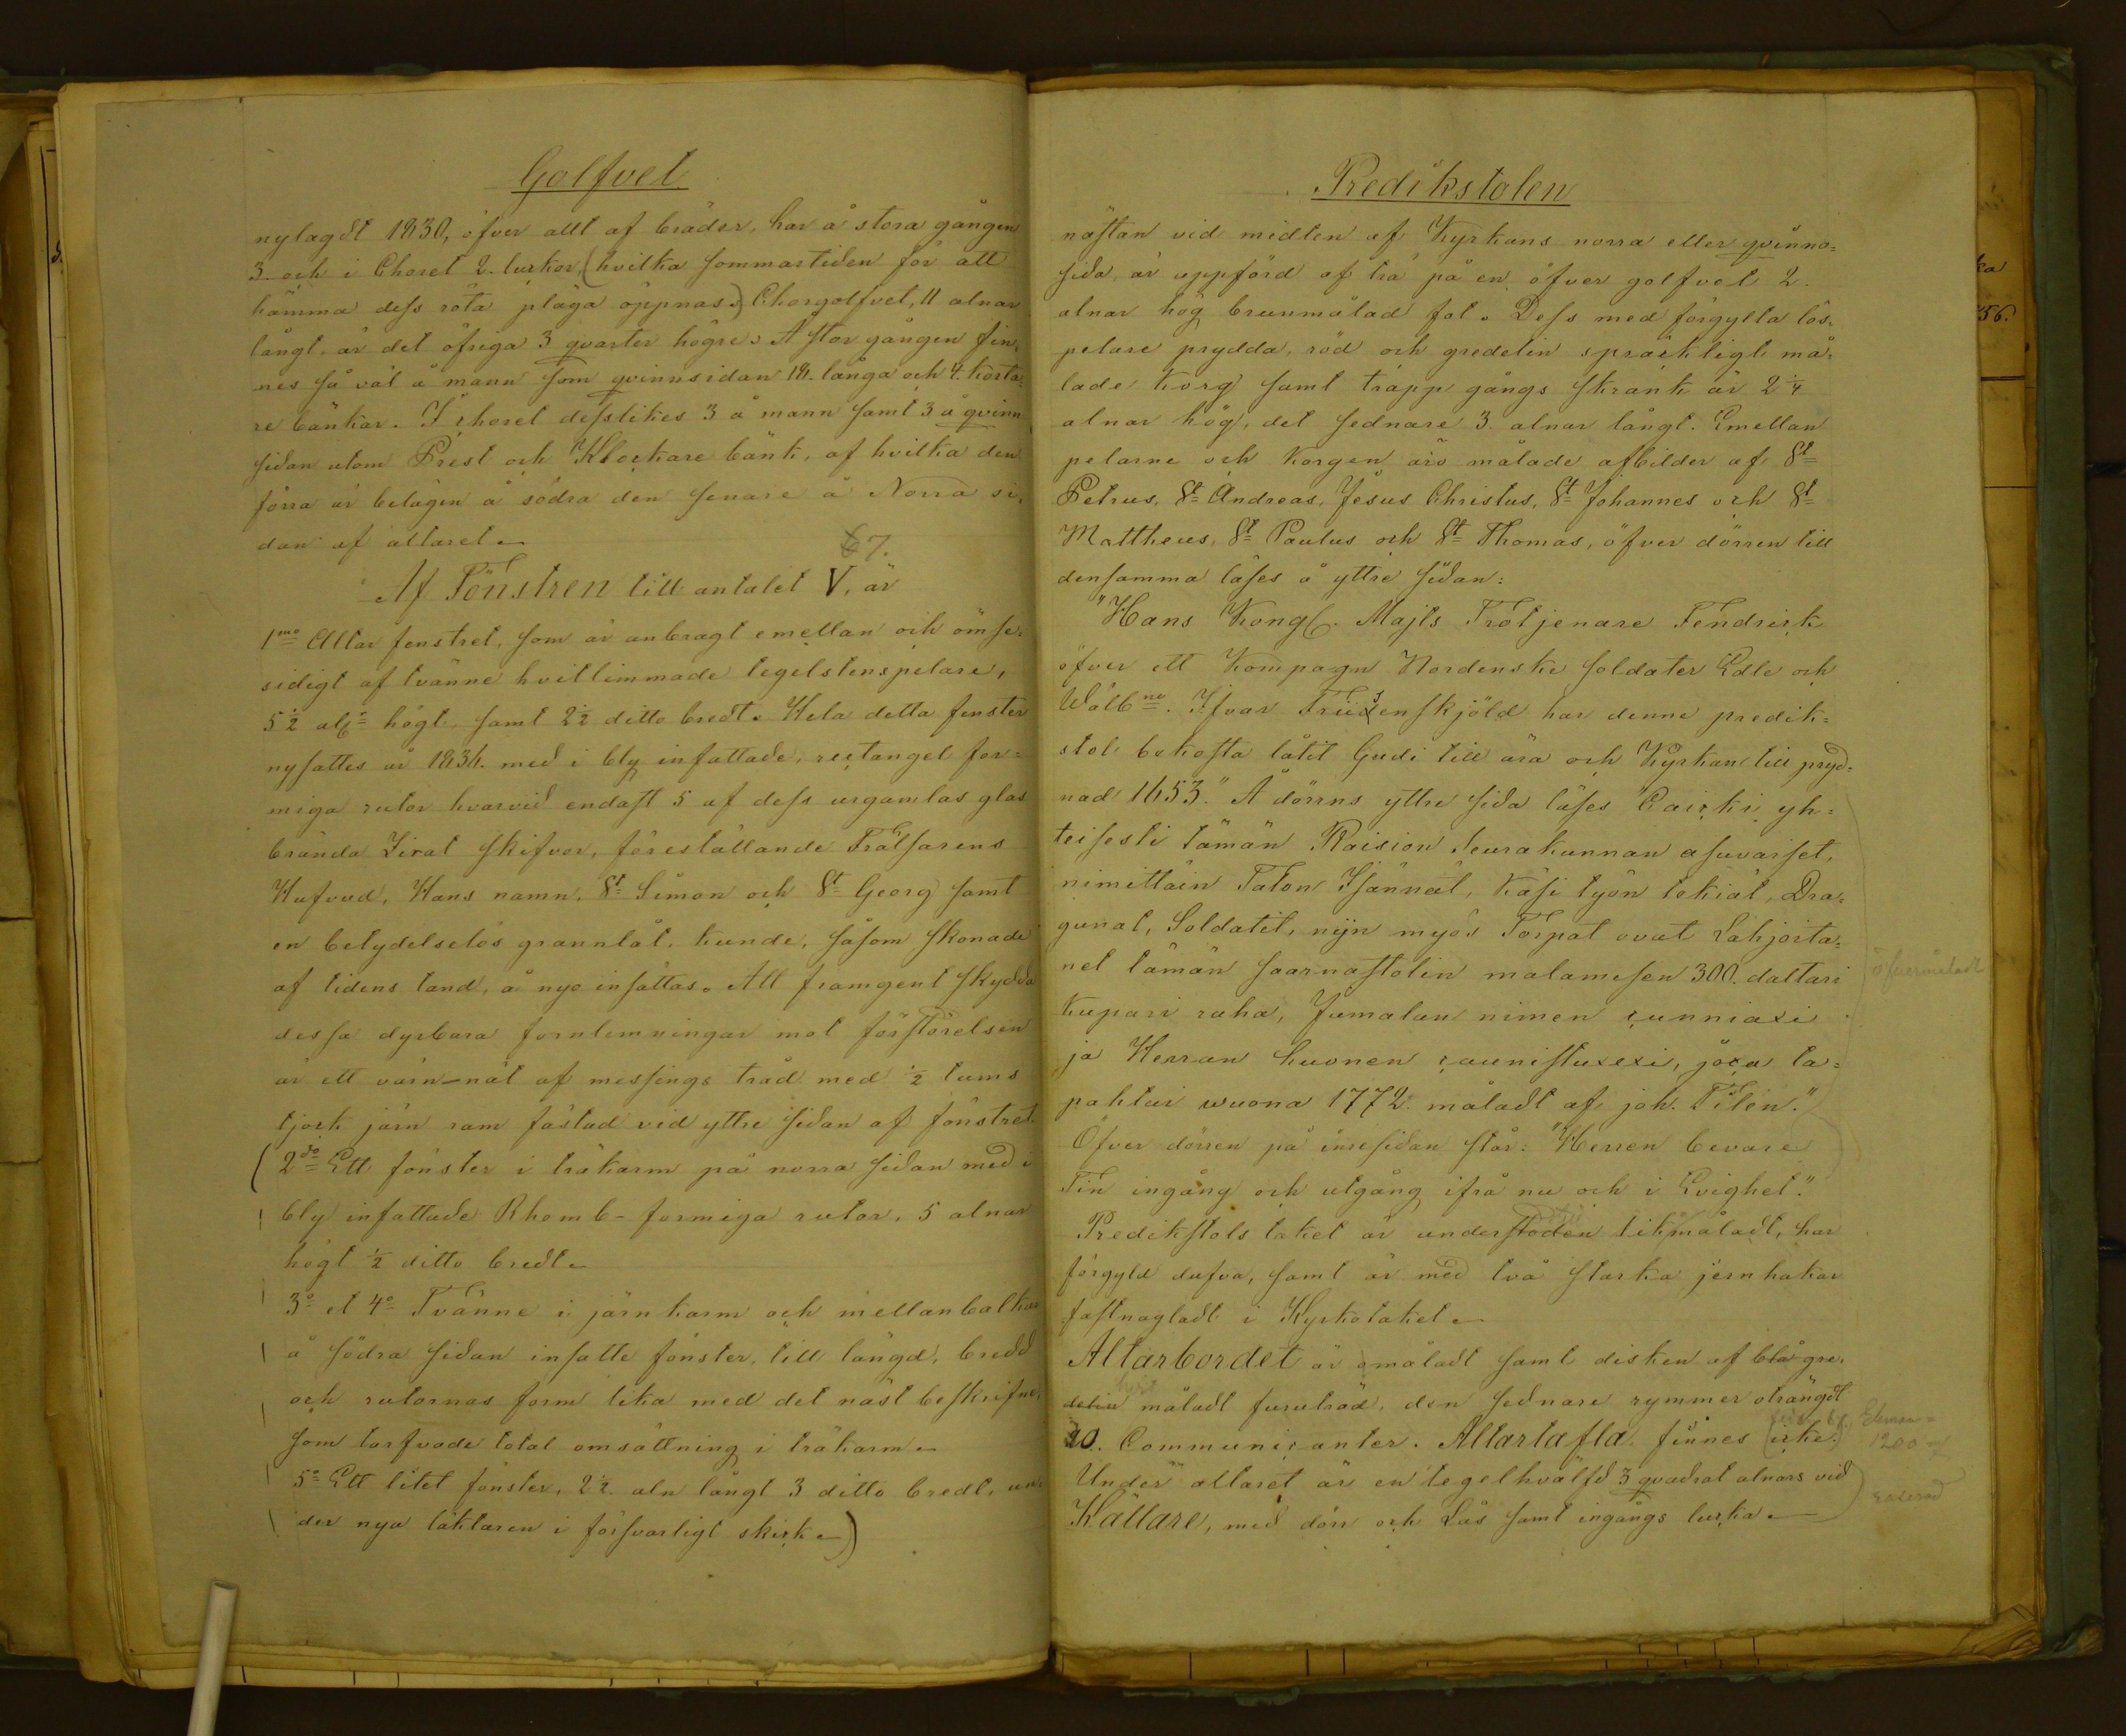 Golfvet
nylagdt 1830, öfver allt af bräder, har å stora gången
3. och i Choret 2. lurkor, (hvilka sommartiden för att
hämma dess röta pläga öppnas.) Chorgolfvet, 11 alnar
långt, är det öfriga 3 qvarter högre. A stor gången fin-
nes så väl å mann som qvinnsidan 18. långa och 4. korta-
re bänkar. I choret desslikes 3 å mann samt 3 å qvinn
sidan utom Prest och Klockare bänk, af hvilka den
förra är belägen å södra den senare å Norra si-
dan af altaret.
6 7.
Af Fönstren till antalet V, är
1mo Altar fenstret, som är anbragt emellan och ömse-
sidigt af tvänne hvitlimmade tegelstenspelare,
5 1/2 aln högt, samt 2 1/2 ditto bredt. Hela detta fenster
nysattes år 1834. med i bly infattade, rectangel for-
miga rutor hvarvid endast 5 af dess urgamlas glas
brända Zirat skifvor, föreställande Frälsarens
Hufvud, Hans namn, St Simon och St Georg samt
en betydelselös grannlåt, kunde, såsom skonade
af tidens tand, å nyo insättas. Att framgent skydda
dessa dyrbara fornlemningar mot förstörelsen
är ett värn-nät af messings tråd med 1/2 tums
tjock järn ram fästad vid yttre sidan af fönstret.
(2do Ett fönster i träkarm på norra sidan med i
bly infattade Rhomb-formiga rutor, 5 alnar
högt 1/2 ditto bredt.
3o et 4o Tvänne i järnkarm och mellanbalkar
å södra sidan insatte fönster, till längd, bredd
och rutornas form lika med det näst beskrifne,
som tarfvade total omsättning i träkarm.
5o Ett litet fönster, 2 1/2 aln långt 3 ditto bredt, un-
der nya läktaren i försvarligt skick.)
Predikstolen
nästan vid midten af Kyrkans norra eller qvinno-
sida, är uppförd af trä på en öfver golfvet 2.
alnar hög brunmålad fot. Dess med förgylta lös-
pelare prydda, röd och gredelin spräckligt må-
lade korg samt trapp gångs skrank är 2 1/4
alnar hög, det sednare 3 alnar långt. Emellan
pelarne och korgen äro målade afbilder af St
Petrus, St Andreas, Jesus Christus, St Johannes och St
Mattheus, St Paulus och St Thomas, öfver dörren till
densamma läses å yttre sidan:
"Hans Kongl. Majts Trotjenare Fendrick
öfver ett Kompagn Nordenske soldater Edle och
Wälbne. Ifvar Friisenskjöld har denne predik-
stol bekosta låtit Gudi till ära och Kyrkan till pryd-
nad 1653." Å dörrns yttre sida läses "Caicki yh-
teisesti tämän Raision Seurakunnan asuvaiset,
nimittäin Talon Isännät, käsi työn tekiät, Dra-
gunat, Soldatit, nijn myös Torpat ovat Lahjoita-
net tämän saarnastolin malamisen 300. dallari
kupari raha, Jumalan nimen cunniaxi
ja Herran huonen caunistuxexi, joca ta-
pahtui wuona 1772. måladt af joh. Tilén."
Öfver dörren på insesidan står: "Herren bevare
Tin ingång och utgång ifrå nu och i Evighet."
Predikstols taket är understöden likmåladt, har
förgyld dufva, samt är med två starka jernhakar
fastnagladt i Kyrkotaket.
Altarbordet är omåladt samt disken af blågre-
hvit
delin måladt furuträd, den sednare rymmer oträngdt
20. Communicanter. Altartafla finnes icke.
Under altaret är en tegelhvälfd 3 quadrat alnars vid
Källare, med dörr och Lås samt ingångs lucka.
Öfvermåladt
Ekman
1200
raserad